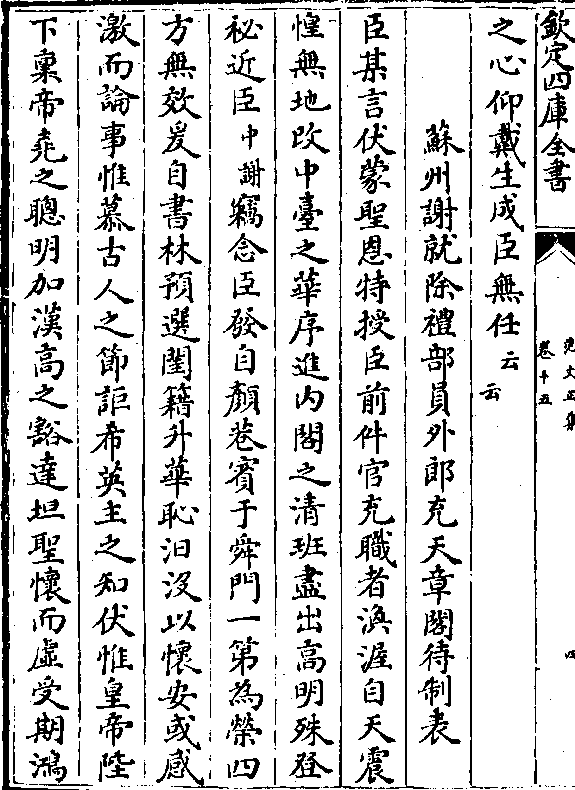 欽定四庫全書
范文正集
卷十五
四
之心仰戴生成臣無任云云
蘇州謝就除禮部員外郎充天章閣待制表
臣某言伏蒙聖恩特授臣前件官充職者渙渥自天震
惶無地改中臺之華序進内閣之清班盡出高明殊登
秘近臣中謝竊念臣發自顔巷賓于舜門一第為榮四
方無效爰自書林預選閨籍升華恥汩没以懷安或感
激而論事惟慕古人之節詎希英主之知伏惟皇帝陛
下稟帝堯之聰明加漢高之豁達坦聖懷而虚受期鴻